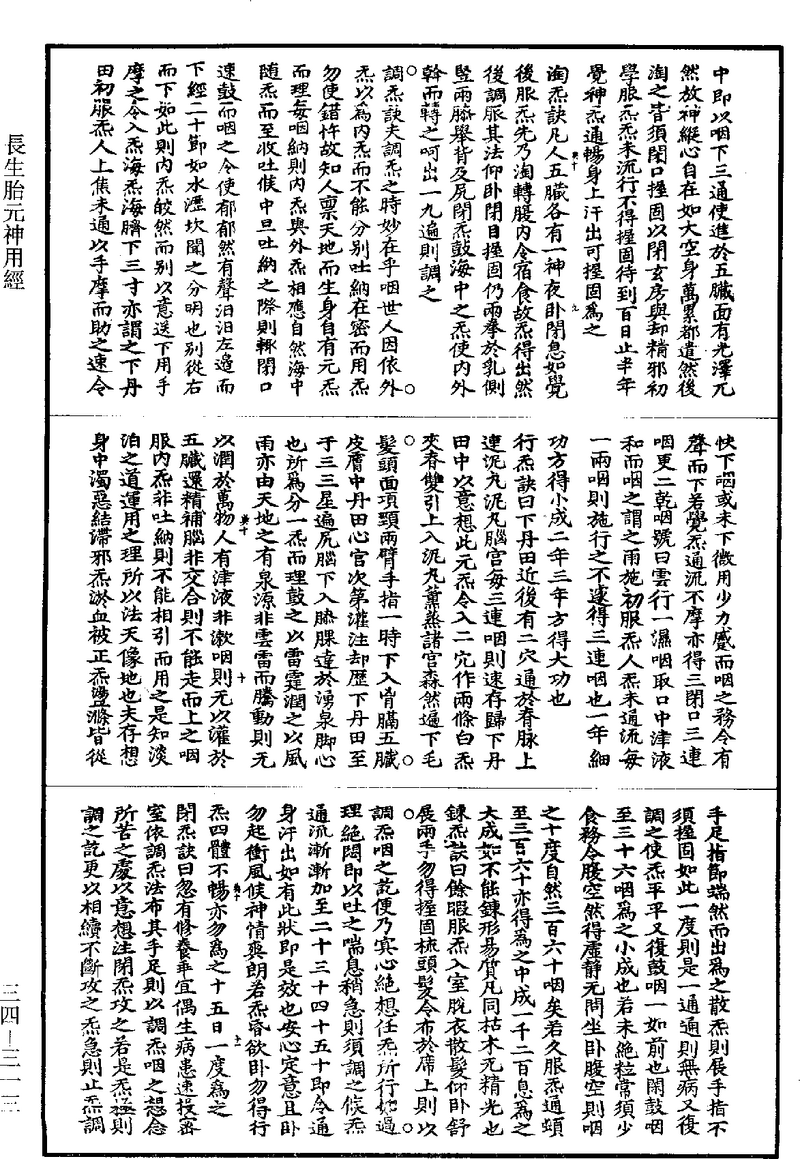 長生胎元神用經
中即以咽下三通使進於五臟面有光澤兀
然放神縱心自在如大空身萬累都遣然後
淘之皆須閉口握固以閉玄房與却精邪初
學服炁炁未流行不得握固待到百日止半年
覺神炁通暢身上汗出可握固為之
淘炁訣凡人五臟各有一神夜卧閉息如覺
後服炁先乃淘轉腹內令宿食故炁得出然
後調服其法仰卧閉目握固仍兩拳於乳側
竪兩膝舉背及尻閉炁鼓海中之炁使內外
斡而轉之呵出一九遍則調之
調炁訣夫調炁之時妙在乎咽世人因依外
炁以為內炁而不能分別吐納在密而用炁
勿使錯忤故知人禀天地而生身自有元炁
而理每咽納則內炁與外炁相應自然海中
隨炁而至收吐候中旦吐納之際則輙閉口
速鼓而咽之令使郁郁然有聲汨汨左邉而
下經二十節如水瀝坎聞之分明也別從右
而下如此則內炁皎然而別以意送下用手
摩之令入炁海炁海臍下三寸亦謂之下丹
田初服炁人上焦未通以手摩而助之速令
快下咽或未下微用少力蹙而咽之務令有
聲而下若覺炁通流不摩亦得三閉口三連
咽更二乾咽號曰雲行一濕咽取口中津液
和而咽之謂之雨施初服炁人炁未通流每
一兩咽則施行之不遽得三連咽也一年細
功方得小成二年三年方得大功也
行炁訣曰下丹田近後有二穴通於脊脉上
連泥丸泥丸腦宮每三連咽則速存歸下丹
田中以意想此元炁令入二宂作兩條白炁
夾脊雙引上入泥丸薰蒸諸宮森然遍下毛
髮頭面項頸兩臂手指一時下入胷膈五臟
皮膚中丹田心宮次第灌注却歷下丹田至
于三三星遍尻腦下入膝踝達於湧泉脚心
也所為分一炁而理鼓之以雷霆潤之以風
雨亦由天地之有泉源非雲雷而騰動則无
以潤於萬物人有津液非漱咽則无以灌於
五臟還精補腦非交合則不能走而上之咽
服內炁非吐納則不能相引而用之是知淡
泊之道運用之理所以法天像地也夫存想
身中濁惡結滯邪炁淤血被正炁盪滌皆從
手足指節端然而出為之散炁則展手指不
須握固如此一度則是一通通則無病又復
調之使炁平平又復鼓咽一如前也閑鼓咽
至三十六咽為之小成也若未絶粒常須少
食務令腹空然得虛静无問坐卧腹空則咽
之十度自然三百六十咽矣若久服炁通頓
至三百六十亦得為之中成一千二百息為之
大成如不能鍊形易質凡同枯木无精光也
鍊炁訣曰餘暇服炁入室脫衣散髮仰卧舒
展兩手勿得握固梳頭髮令布於席上則以
調炁咽之訖便乃㝠心絶想任炁所行如過
理絶悶即以吐之喘息稍急則須調之候炁
通流漸漸加至二十三十四十五十即令通
身汗出如有此狀即是效也安心定意且卧
勿起衝風候神情爽朗若炁昏欲卧勿得行
炁四體不暢亦勿為之十五日一度為之
閉炁訣曰忽有修養乖宜偶生病患速投密
室依調炁法布其手足則以調炁咽之想念
所苦之處以意想注閉炁攻之若是炁極則
調之訖更以相續不斷攻之炁急則止炁調
三四-三一三